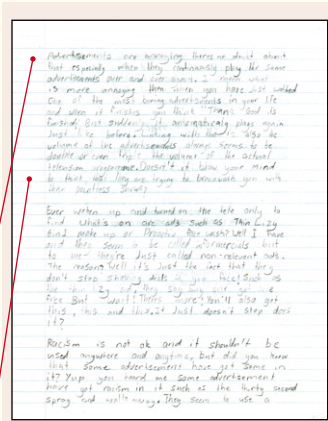 Advertisements are annoying theres no doubt about
that especially when they continuously play the same
advertisements over and over again. I mean what
is more annoying than when you have just watched
One of the most boring advertisments in your life
and when it finishs you think "Thank God its
finished" But suddenly it automatically plays again
Just like before. Linking with that is also the
volume of the advertisements always seems to be
double or even triple the volume of the actual
television programme. Doesn't it blow your mind
to that like they are trying to brainwash you with
their pointless
Ever woken up and turned on the tele only to
find what's on are ads such as Thin Lizy
and make up or Proactive face wash? Well I have
and they seem to be called infomercials but
to me they're Just called non-relevant ads.
The reason? Well it's Just the fact that they
don't stop shoving ads in your face! Such as
the thin lizy ad, they say buy one get one
free But wait! There's more! You'll also get
this, this and this. It Just doesn't stop does
it?
Racism is not ok and it shouldn't be
used anywhere and anytime, but did you know
that some advertisement have got some in
it? Yup you heard me some advertisement
have got racism in it such as the thirty second
spray and walk away. They seem to use a